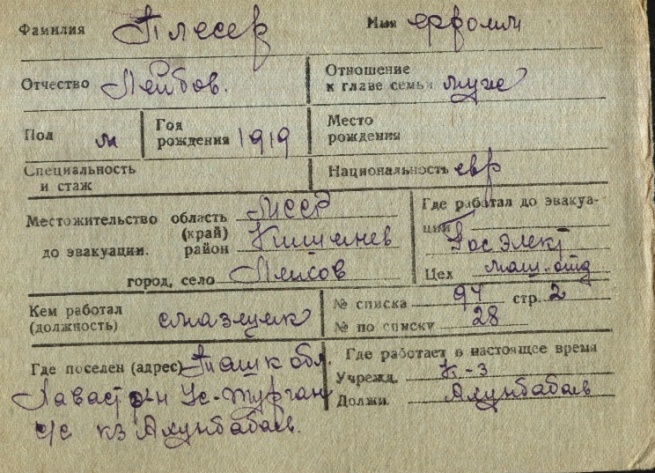 Фамилия Плесер Имя Ефроим
Отчество Лейбов. Отношение к главе семьи муж
Пол м Год рождения 1919 Место рождения
Специальность и стаж Национальность евр
Местожительство до эвакуации. область (край) МССР
район Кишинев
город, село
Где работал до эвакуации Госэлект
Цех маш. отд
Кем работал (должность) смазщик
№ списка 97 стр. 2
№ по списку 28
Где поселен (адрес) Ташк обл.
р-н Ус-Турган
с/с кз Ахунбабаев.
Где работает в настоящее время
Учрежд. К-з
Должн. Ахунбабаев